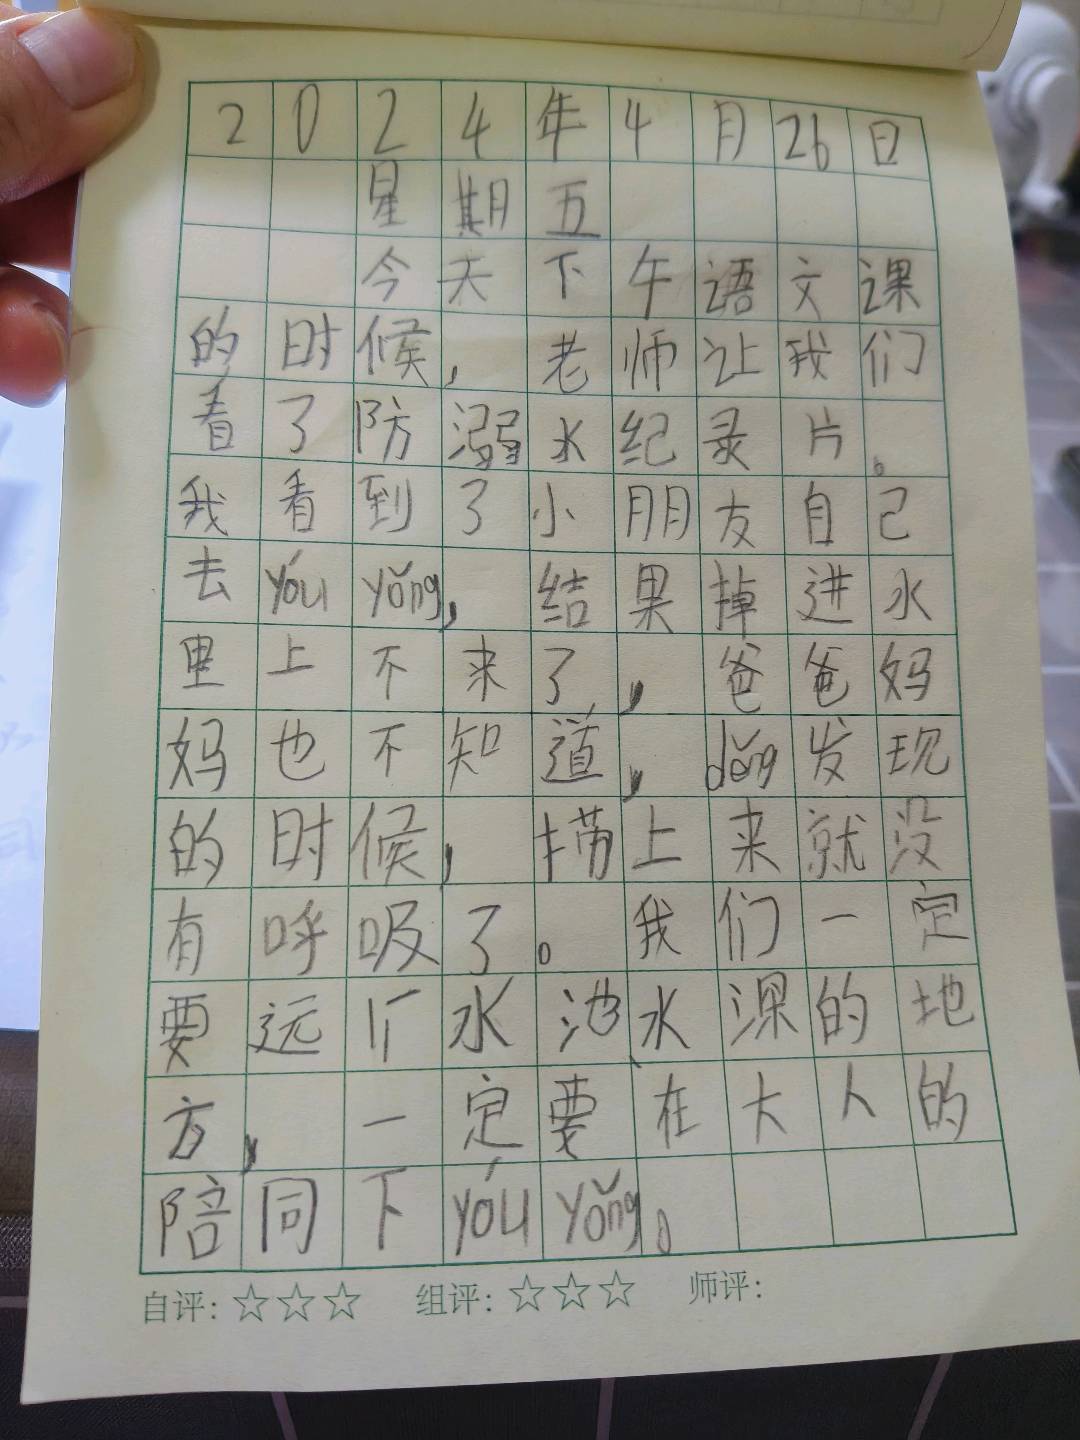 2024年4月26日
星期五
今天下午语文课
的时候，老师让我们
看了防溺水纪录片。
我看到了小朋友自己
去yóu yǒng，结果掉进水
里上不来了，爸爸妈
妈也不知道，děng发现
的时候，捞上来就没
有呼吸了。我们一定
要远水池水深的地
方，一定要在大人的
陪同下yóu yǒng。
自评：☆☆☆ 组评：☆☆☆ 师评：